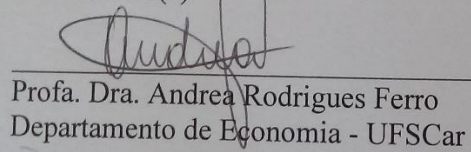 Profa. Dra. Andrea Rodrigues Ferro
Departamento de Economia - UFSCar